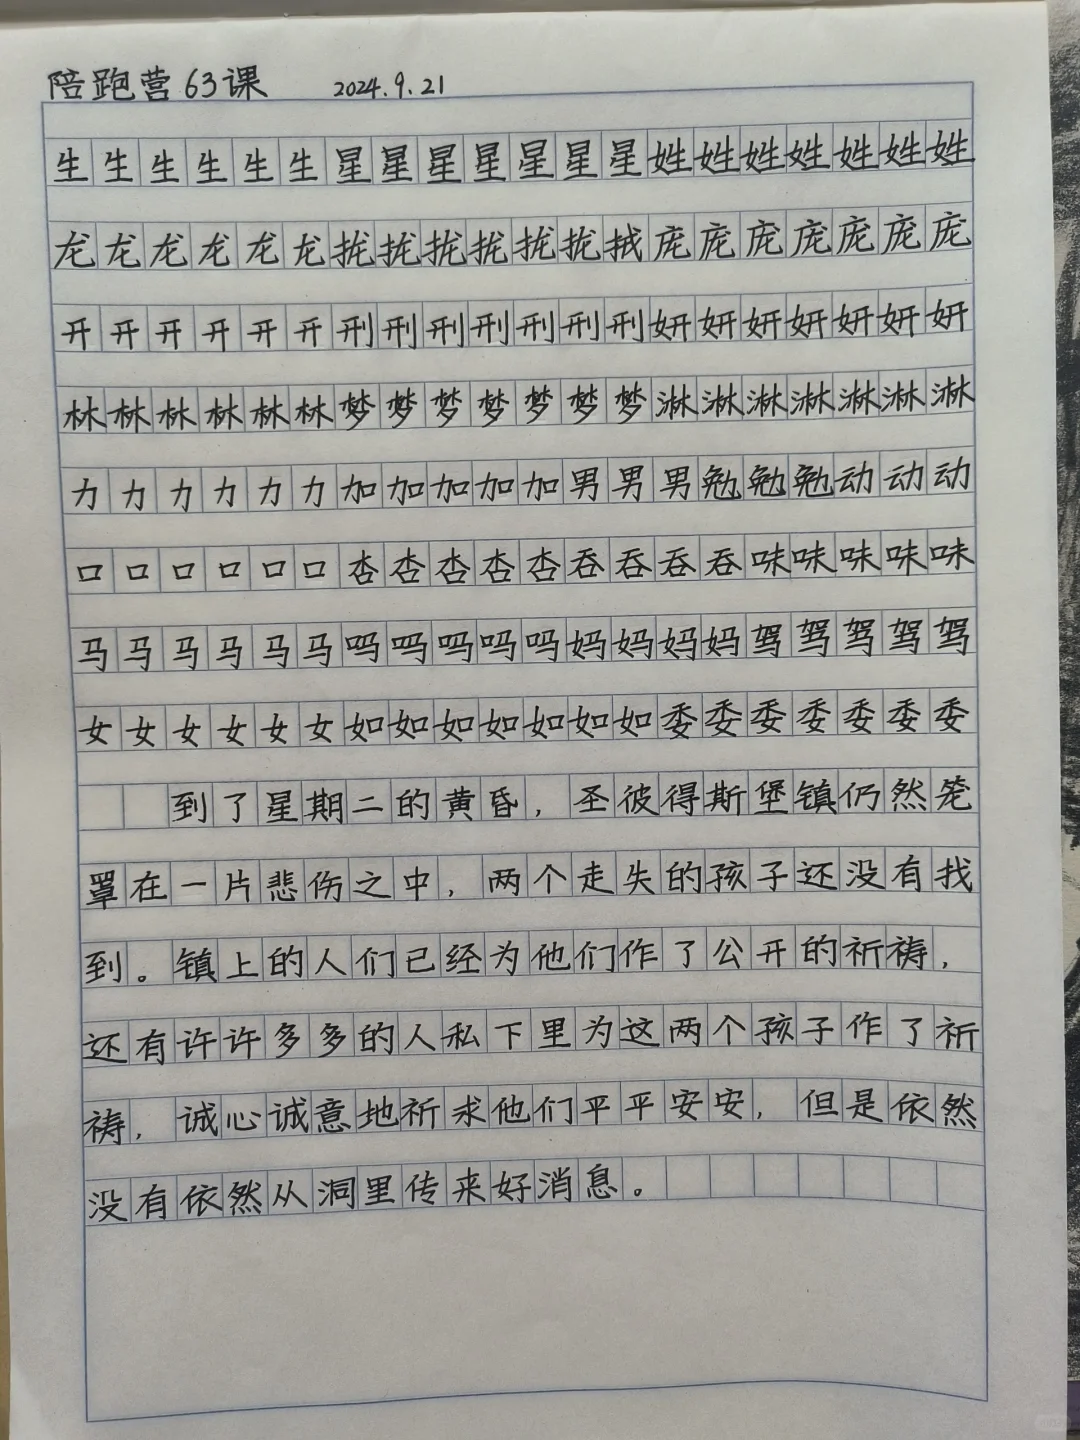 陪跑营63课 2024.9.21
生生生生生生星星星星星星星姓姓姓姓姓姓姓
龙龙龙龙龙龙拢拢拢拢拢拢拢庞庞庞庞庞庞庞
开开开开开开刑刑刑刑刑刑刑妍妍妍妍妍妍妍
林林林林林林梦梦梦梦梦梦梦淋淋淋淋淋淋淋
力力力力力力加加加加加男男男勉勉勉动动动
口口口口口口杏杏杏杏杏吞吞吞吞味味味味味
马马马马马马吗吗吗吗吗妈妈妈妈驾驾驾驾驾
女女女女女女如如如如如如如委委委委委委委
到了星期二的黄昏，圣彼得斯堡镇仍然笼
罩在一片悲伤之中，两个走失的孩子还没有找
到。镇上的人们已经为他们作了公开的祈祷，
还有许许多多的人私下里为这两个孩子作了祈
祷，诚心诚意地祈求他们平平安安，但是依然
没有依然从洞里传来好消息。